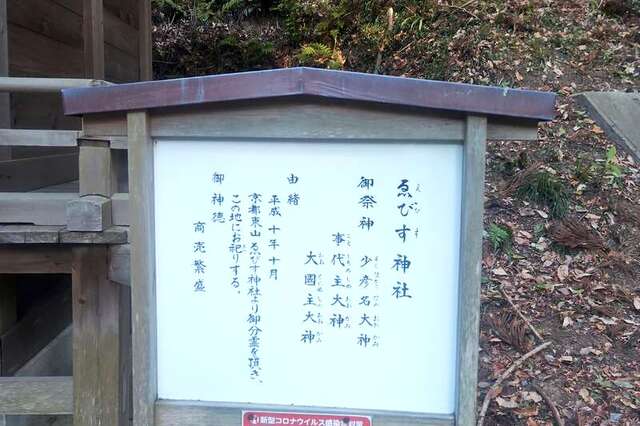 ゑびす神社
えびす
御祭神 少彦名大神
事代主大神
大國主大神
由緒
平成十年十月
京都東山ゑびす神社より御分霊を頂き、
この地にお祀りする。
御神徳
商売繁盛
新型コロナウイルス感染